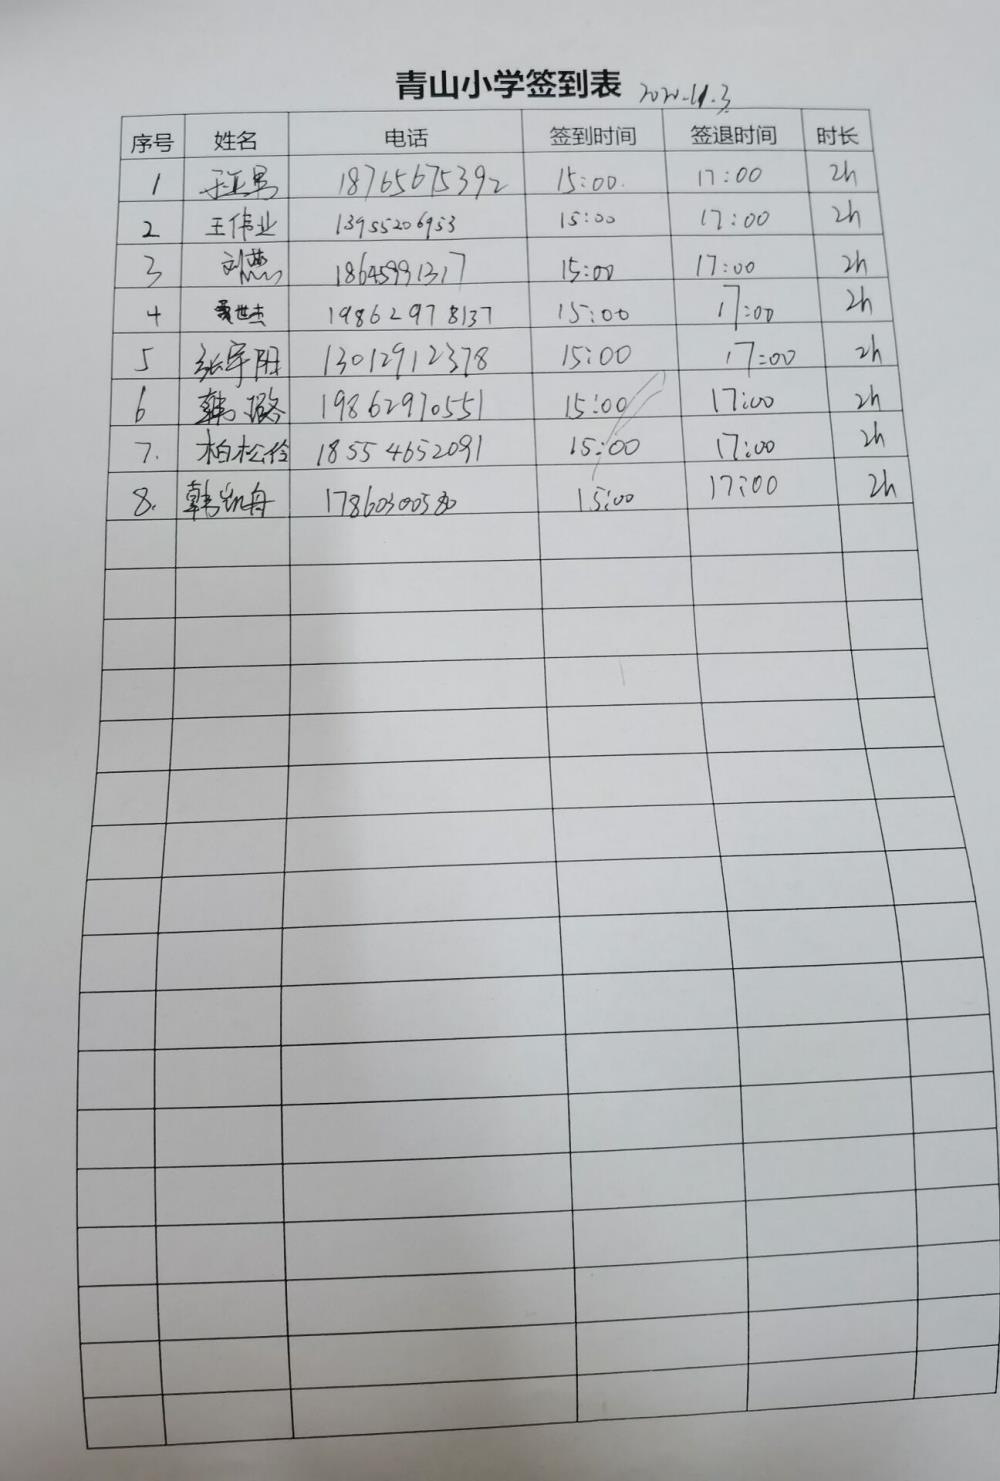 青山小学签到表 2020.11.3
序号 姓名 电话 签到时间 签退时间 时长
1 18765675392 15:00. 17:00 2h
2 王伟业 13955206953 15:00 17:00 2h
3 刘燕 18645991317 15:00 17:00 2h
4 世杰 19862978137 15:00 17:00 2h
5 张宇阳 13012912378 15:00 17:00 2h
6 韩璐 19862970551 15:00 17:00 2h
7. 柏松伶 18554652091 15:00 17:00 2h
8. 韩凯舟 17860300580 15:00 17:00 2h